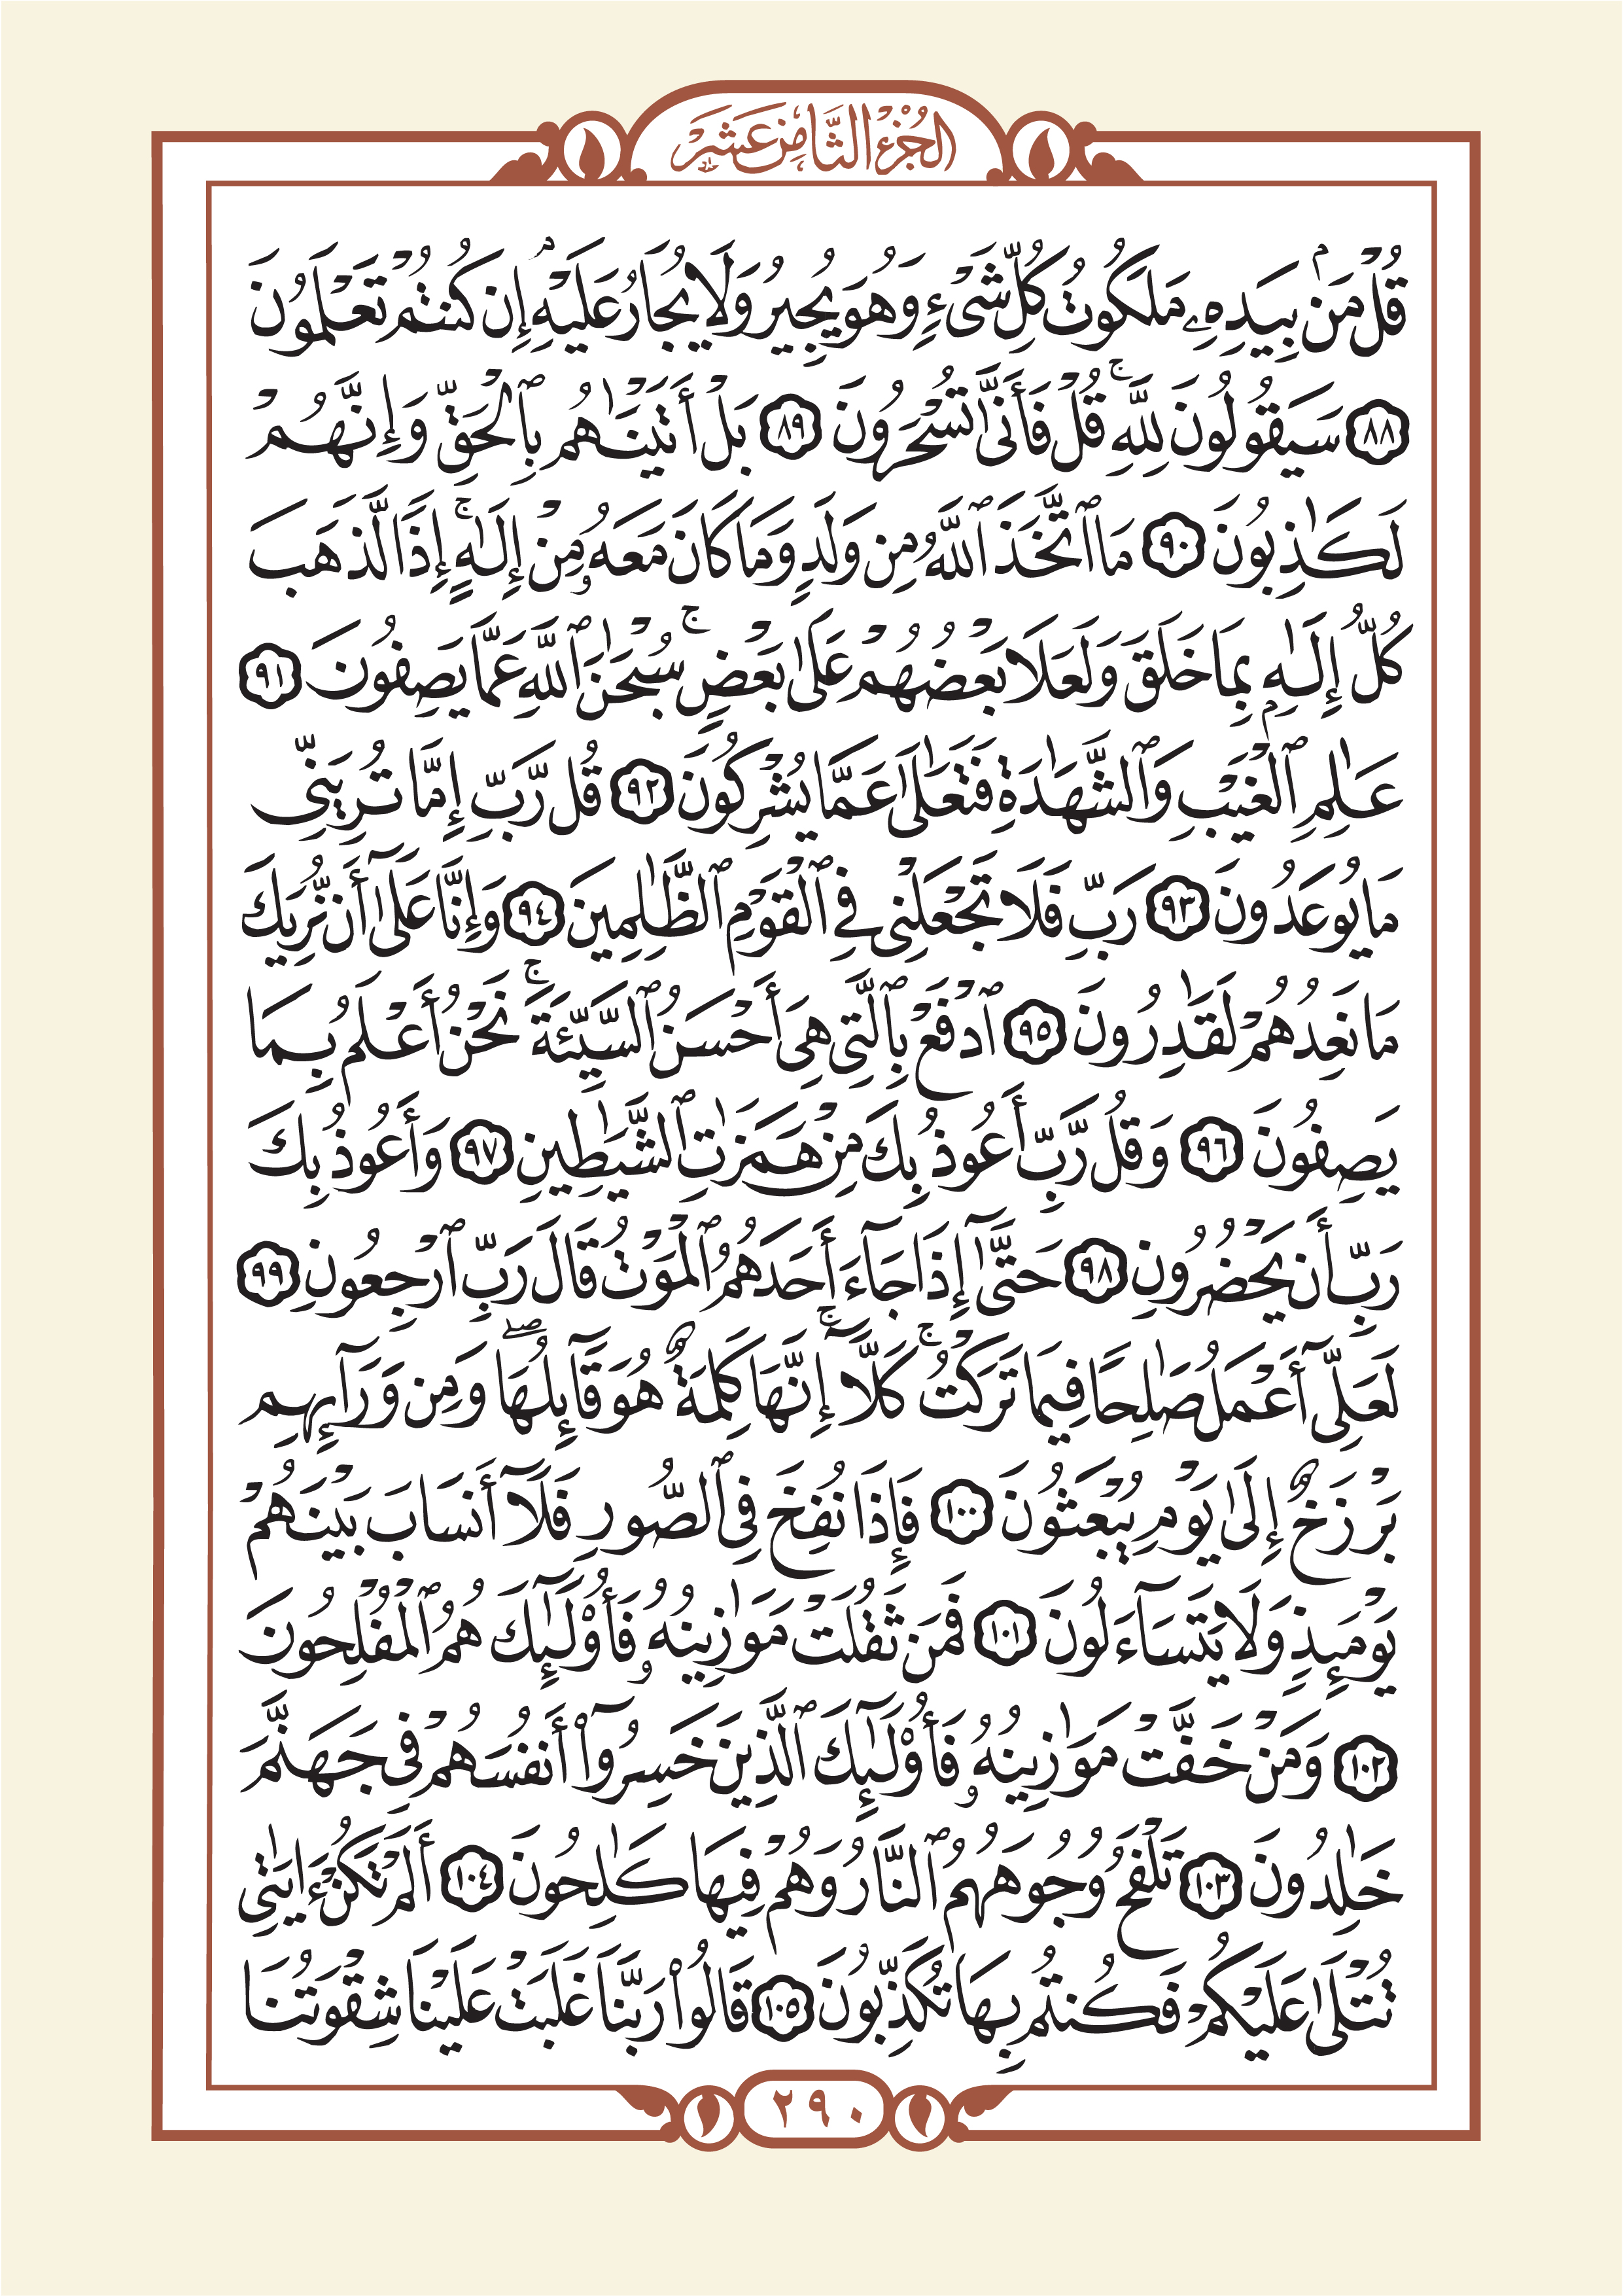 الجُزْءُ الثَّامِنَ عَشَرَ
قُلْ مَنۢ بِيَدِهِۦ مَلَكُوتُ كُلِّ شَىْءٍ وَهُوَ يُجِيرُ وَلَا يُجَارُ عَلَيْهِ إِن كُنتُمْ تَعْلَمُونَ
٨٨ سَيَقُولُونَ لِلَّهِ ۚ قُلْ فَأَنَّىٰ تُسْحَرُونَ ٨٩ بَلْ أَتَيْنَٰهُم بِٱلْحَقِّ وَإِنَّهُمْ
لَكَٰذِبُونَ ٩٠ مَا ٱتَّخَذَ ٱللَّهُ مِن وَلَدٍ وَمَا كَانَ مَعَهُۥ مِنْ إِلَٰهٍ ۚ إِذًا لَّذَهَبَ
كُلُّ إِلَٰهٍۭ بِمَا خَلَقَ وَلَعَلَا بَعْضُهُمْ عَلَىٰ بَعْضٍ ۚ سُبْحَٰنَ ٱللَّهِ عَمَّا يَصِفُونَ ٩١
عَٰلِمِ ٱلْغَيْبِ وَٱلشَّهَٰدَةِ فَتَعَٰلَىٰ عَمَّا يُشْرِكُونَ ٩٢ قُل رَّبِّ إِمَّا تُرِيَنِّى
مَا يُوعَدُونَ ٩٣ رَبِّ فَلَا تَجْعَلْنِى فِى ٱلْقَوْمِ ٱلظَّٰلِمِينَ ٩٤ وَإِنَّا عَلَىٰٓ أَن نُّرِيَكَ
مَا نَعِدُهُمْ لَقَٰدِرُونَ ٩٥ ٱدْفَعْ بِٱلَّتِى هِىَ أَحْسَنُ ٱلسَّيِّئَةَ ۚ نَحْنُ أَعْلَمُ بِمَا
يَصِفُونَ ٩٦ وَقُل رَّبِّ أَعُوذُ بِكَ مِنْ هَمَزَٰتِ ٱلشَّيَٰطِينِ ٩٧ وَأَعُوذُ بِكَ
رَبِّ أَن يَحْضُرُونِ ٩٨ حَتَّىٰٓ إِذَا جَآءَ أَحَدَهُمُ ٱلْمَوْتُ قَالَ رَبِّ ٱرْجِعُونِ ٩٩
لَعَلِّىٓ أَعْمَلُ صَٰلِحًا فِيمَا تَرَكْتُ ۚ كَلَّآ ۚ إِنَّهَا كَلِمَةٌ هُوَ قَآئِلُهَا ۖ وَمِن وَرَآئِهِم
بَرْزَخٌ إِلَىٰ يَوْمِ يُبْعَثُونَ ١٠٠ فَإِذَا نُفِخَ فِى ٱلصُّورِ فَلَآ أَنسَابَ بَيْنَهُمْ
يَوْمَئِذٍ وَلَا يَتَسَآءَلُونَ ١٠١ فَمَن ثَقُلَتْ مَوَٰزِينُهُۥ فَأُو۟لَٰٓئِكَ هُمُ ٱلْمُفْلِحُونَ
١٠٢ وَمَنْ خَفَّتْ مَوَٰزِينُهُۥ فَأُو۟لَٰٓئِكَ ٱلَّذِينَ خَسِرُوٓا۟ أَنفُسَهُمْ فِى جَهَنَّمَ
خَٰلِدُونَ ١٠٣ تَلْفَحُ وُجُوهَهُمُ ٱلنَّارُ وَهُمْ فِيهَا كَٰلِحُونَ ١٠٤ أَلَمْ تَكُنْ ءَايَٰتِى
تُتْلَىٰ عَلَيْكُمْ فَكُنتُم بِهَا تُكَذِّبُونَ ١٠٥ قَالُوا۟ رَبَّنَا غَلَبَتْ عَلَيْنَا شِقْوَتُنَا
٢٩٠